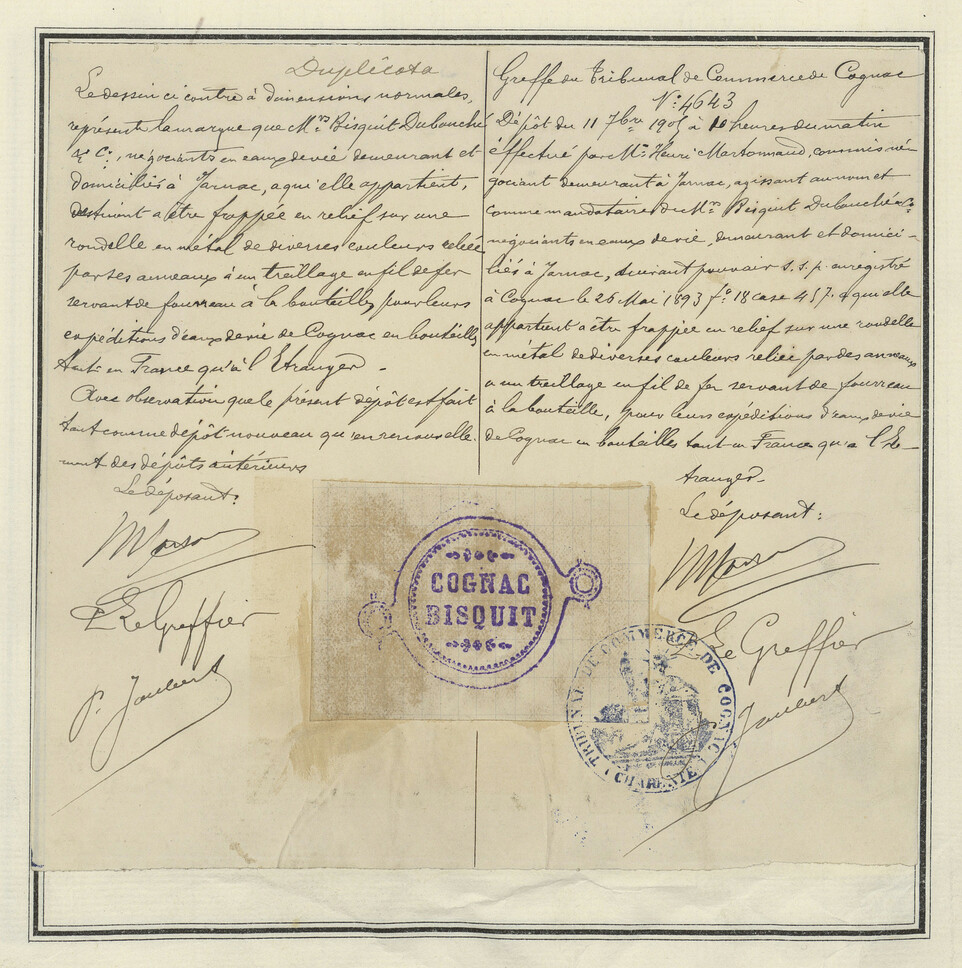 Duplicata
Le dessin ci contre à dimensions normales,
représente la marque que Mrs Bisquit Dubouché
& Co, négociants en eaux de vie demeurant et
domiciliés à Jarnac, a qu'elle appartient,
destinent a être frappée en relief sur une
rondelle en métal de diverses couleurs reliée
par ses anneaux à un treillage en fil de fer
servant de fourreau à la bouteille, pour leurs
expéditions d'eaux de vie de Cognac en bouteilles
tant en France qu'à l'Etranger -
Avec observation que le présent dépôt est fait
tant comme dépôt nouveau qu'en renouvelle-
ment des dépôts antérieurs
Le déposant:
Le Greffier
P. Joubert
Greffe du Tribunal de Commerce de Cognac
No 4643
Dépôt du 11 7bre 1905 à 10 heures du matin
effectué par Mr Henri Martonnaud, commis né-
gociant demeurant à Jarnac, agissant au nom et
comme mandataire de Mrs Bisquit Dubouché & Co
négociants en eaux de vie, demeurant et domici-
liés à Jarnac, suivant pouvoir s.s.p. enregistré
à Cognac le 26 Mai 1893 fo 18 case 457. & qu'elle
appartient a être frappée en relief sur une rondelle
en métal de diverses couleurs reliée par des anneaux
a un treillage en fil de fer servant de fourreau
à la bouteille, pour leurs expéditions d'eaux de vie
de Cognac en bouteilles tant en France qu'a l'E-
tranger -
Le déposant:
Le Greffier
Joubert
COGNAC
BISQUIT
TRIBUNAL DE COMMERCE DE COGNAC
(CHARENTE)